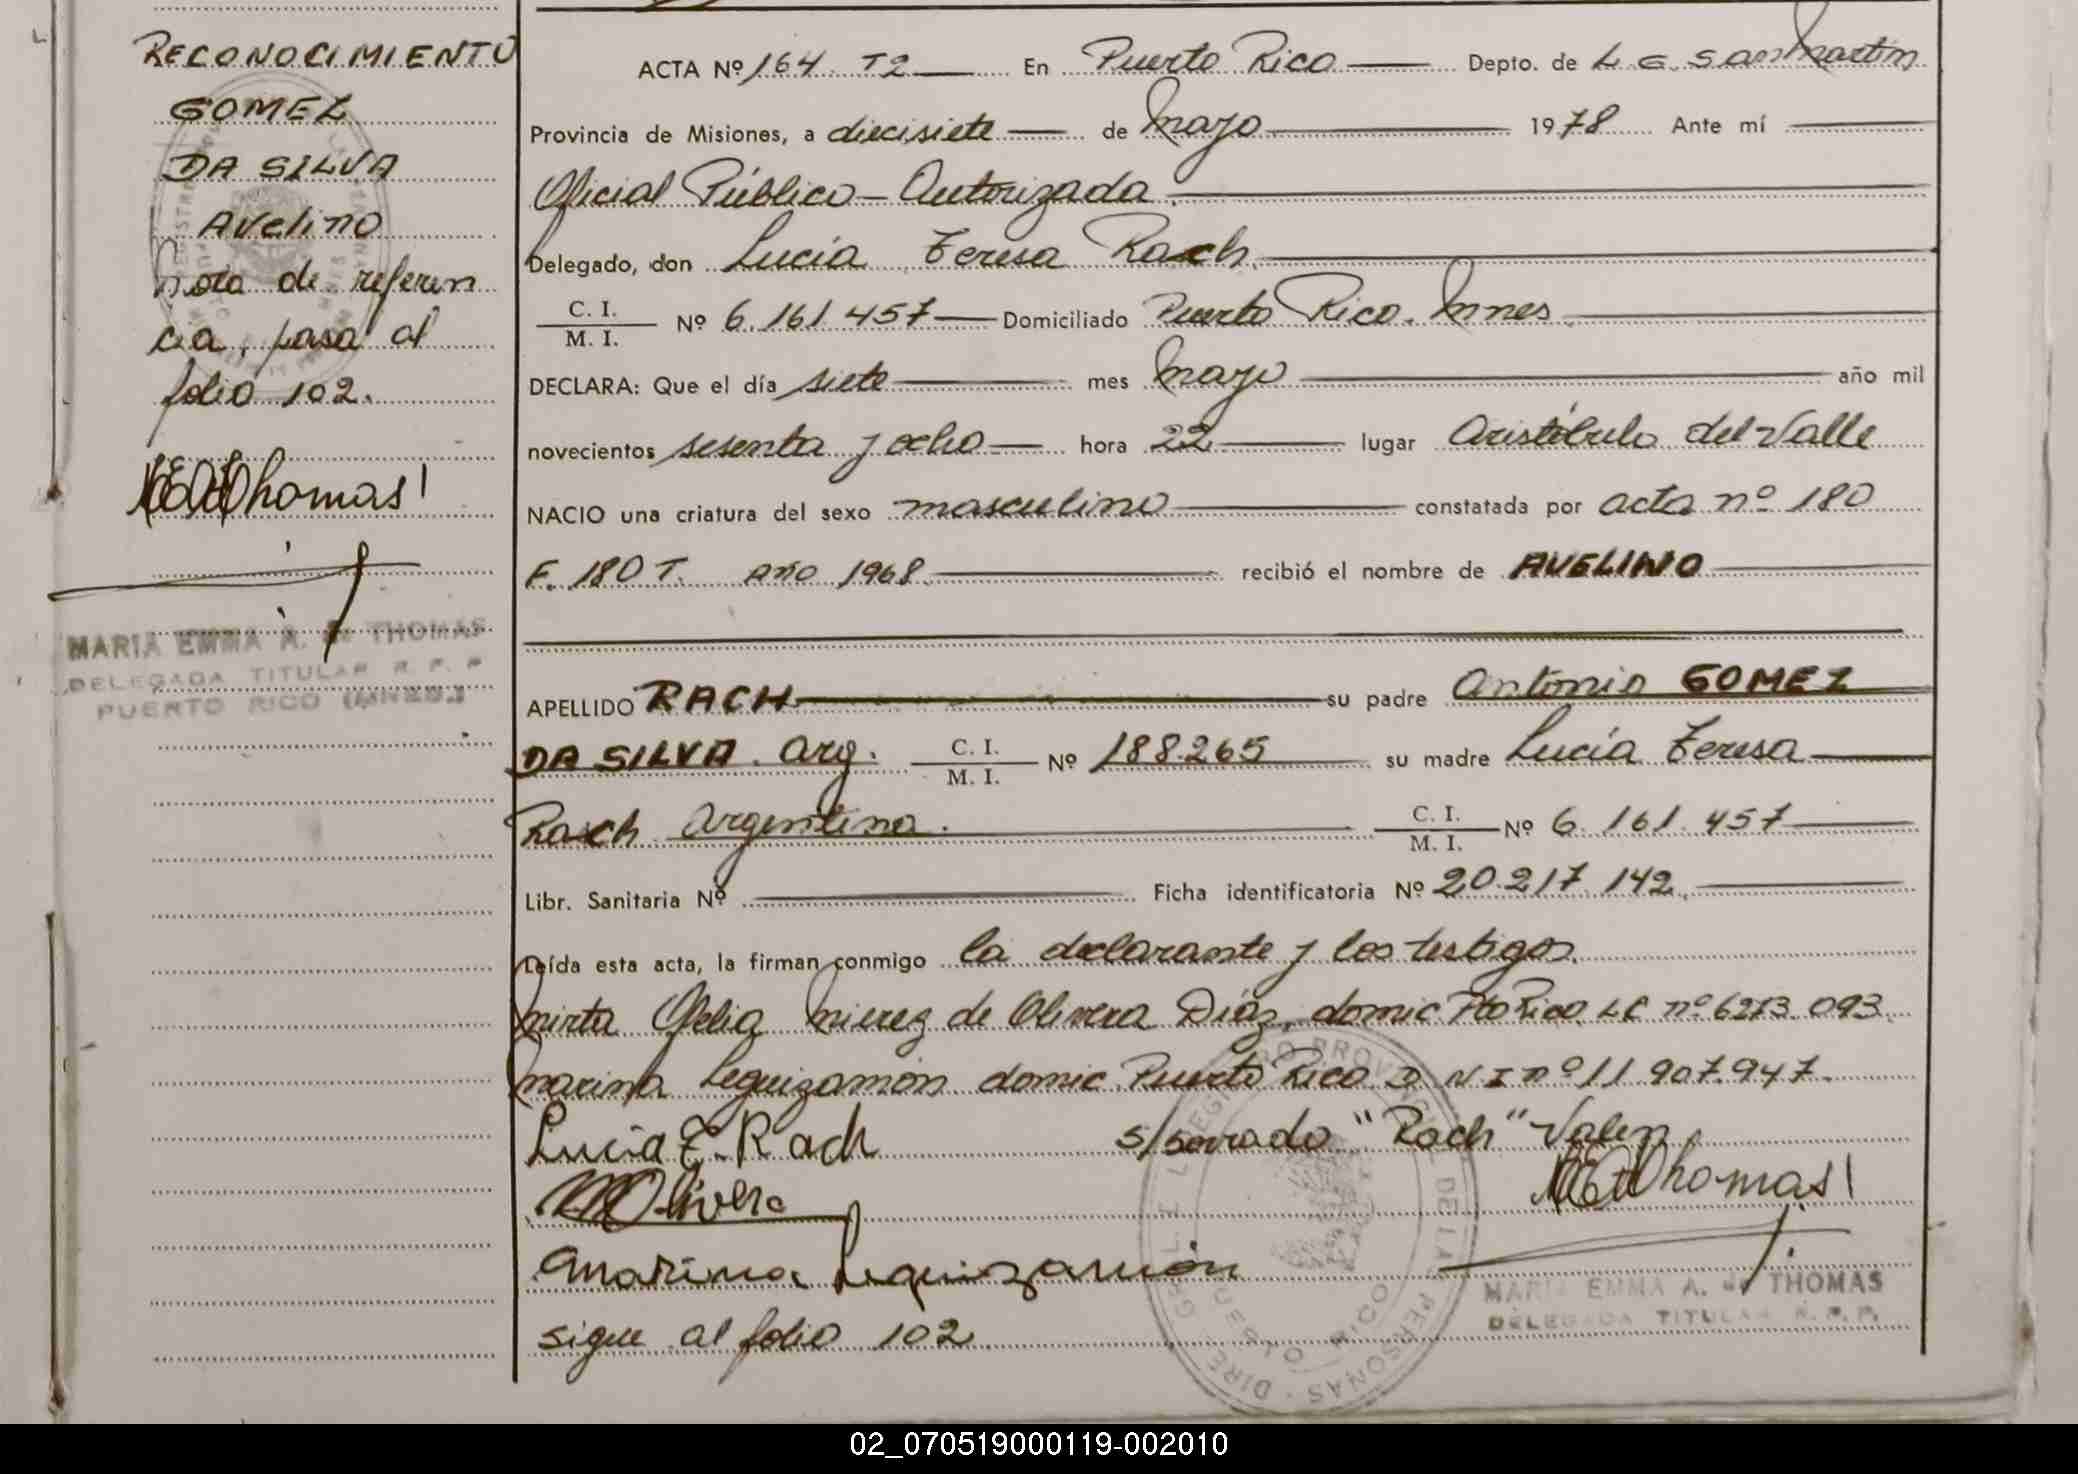 RECONOCIMIENTO
GOMEZ
DA SILVA
Avelino
nota de referen
cia, pasa al
folio 102.
Thomas
MARIA EMMA A. de THOMAS
DELEGADA TITULAR R. P. P
PUERTO RICO (MNES.)
ACTA Nº 164 T2 En Puerto Rico Depto. de L. G. San Martín
Provincia de Misiones, a diecisiete de mayo 1978 Ante mí
Oficial Público - Autorizada
Delegado, don Lucía Teresa Rach
C. I. / M. I. Nº 6.161.457 Domiciliado Puerto Rico. Mnes
DECLARA: Que el día siete mes mayo año mil
novecientos sesenta y ocho hora 22 lugar Aristóbulo del Valle
NACIO una criatura del sexo masculino constatada por acta nº 180
F. 180 T. año 1968 recibió el nombre de AVELINO
APELLIDO RACH su padre Antonio GOMEZ
DA SILVA. Arg. C. I. / M. I. Nº 188.265 su madre Lucía Teresa
Rach Argentina. C. I. / M. I. Nº 6.161.457
Libr. Sanitaria Nº Ficha identificatoria Nº 20.217.142
Leída esta acta, la firman conmigo la declarante y los testigos.
Mirta Ofelia Mierez de Olivera Díaz, domic Pto Rico LC nº 6273.093
Marina Leguizamón domic. Puerto Rico D N I nº 11.907.947.
Lucia T. Rach s/serrado "Rach" Valen
Olivera Thomas
Marina Leguizamón
MARIA EMMA A. de THOMAS
DELEGADA TITULAR R. P. P.
sigue al folio 102
REGISTRO PROVINCIAL DE LAS PERSONAS
PUERTO RICO
02_070519000119-002010